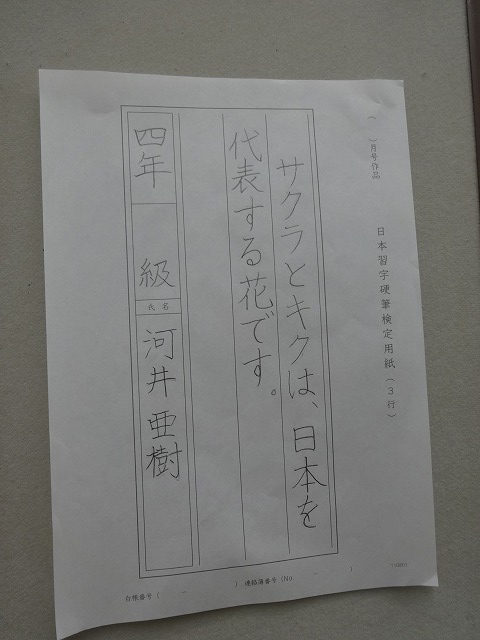 日本習字硬筆検定用紙（3行）
（　　）月号作品
サクラとキクは、日本を
代表する花です。
四年　級　氏名　河井亜樹
台帳番号（　　－　　）連絡簿番号（No.　　－　　）